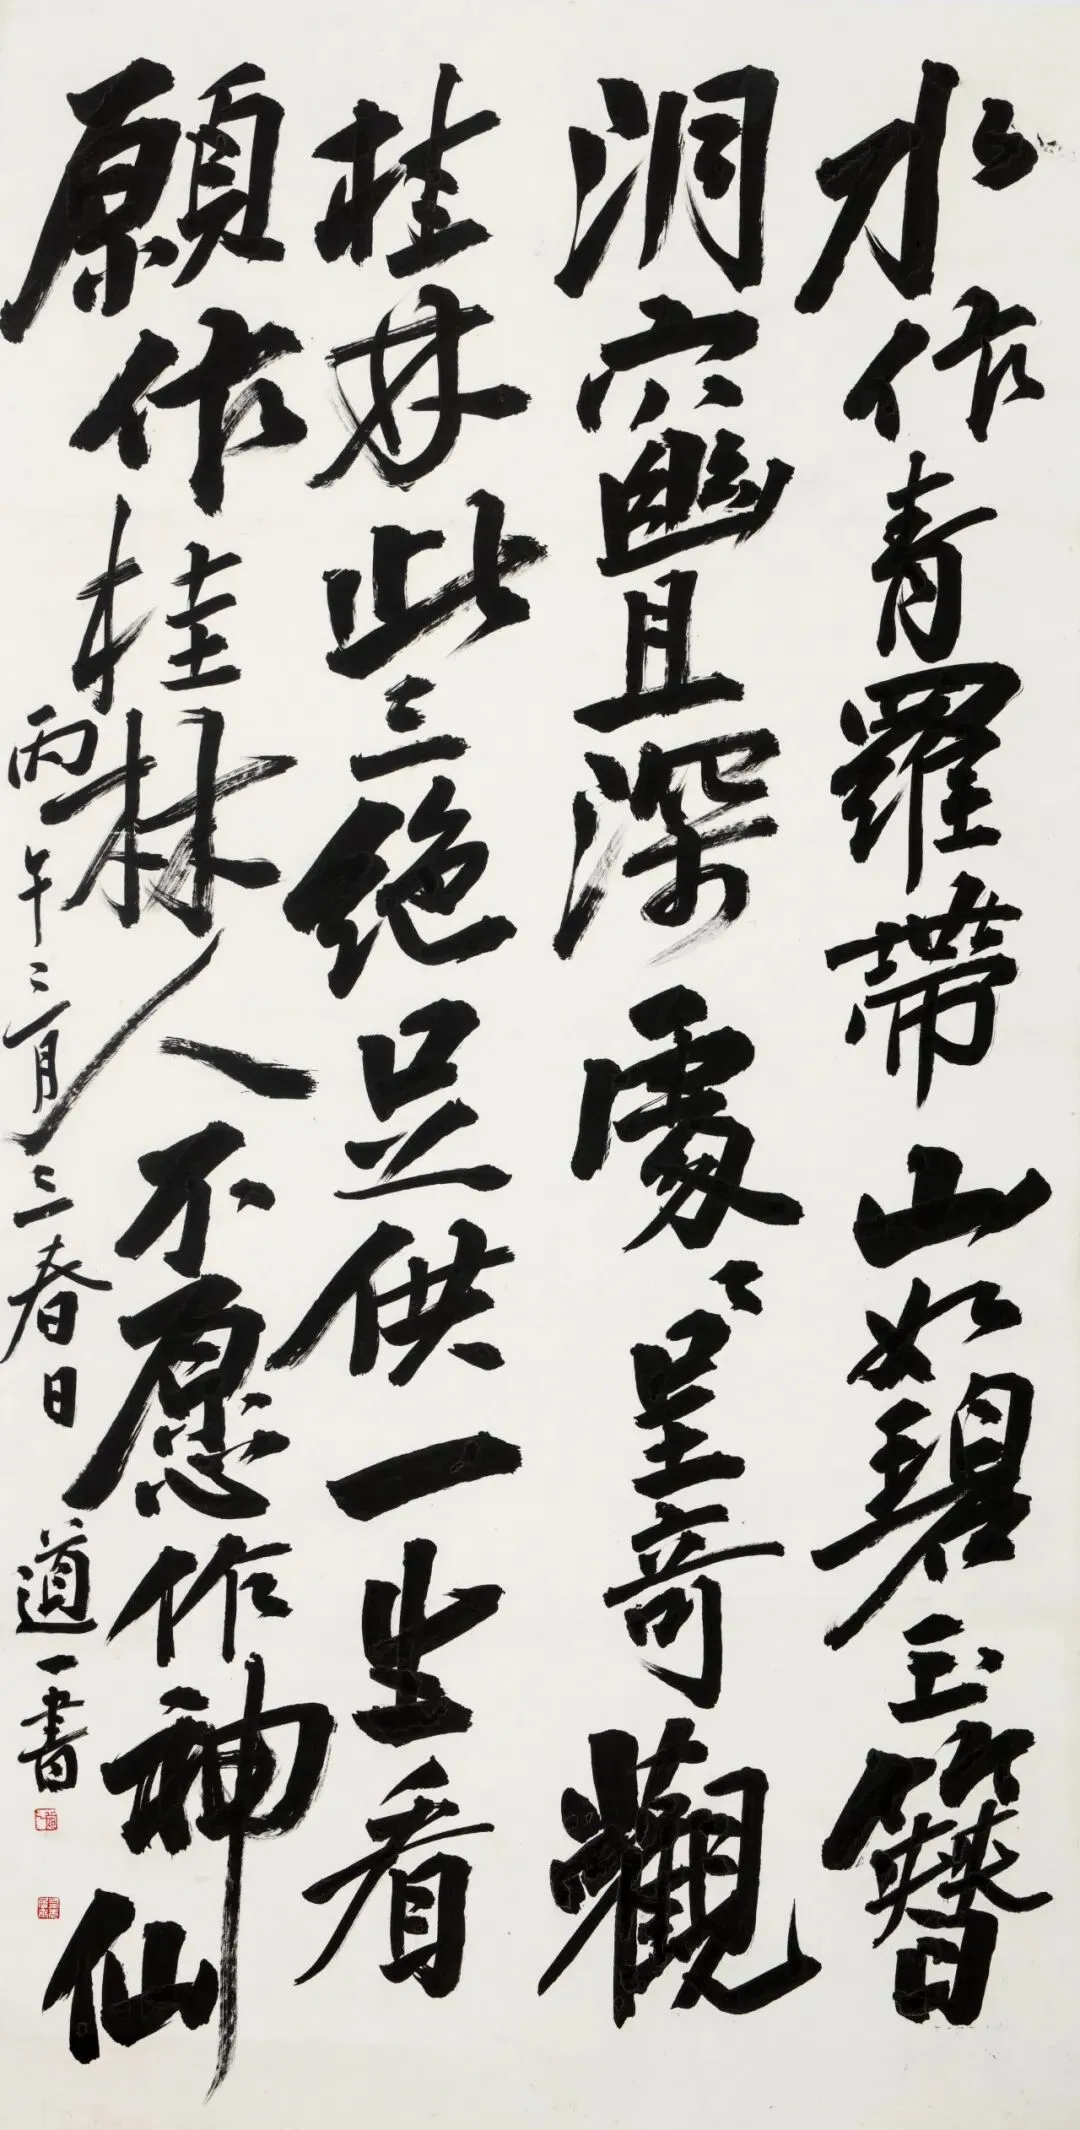 水作青羅帶山如碧玉簪
洞穴幽且深處〻呈奇觀
桂林此三絶足供一生看
願作桂林人不愿作神仙
丙午三月三春日道一書